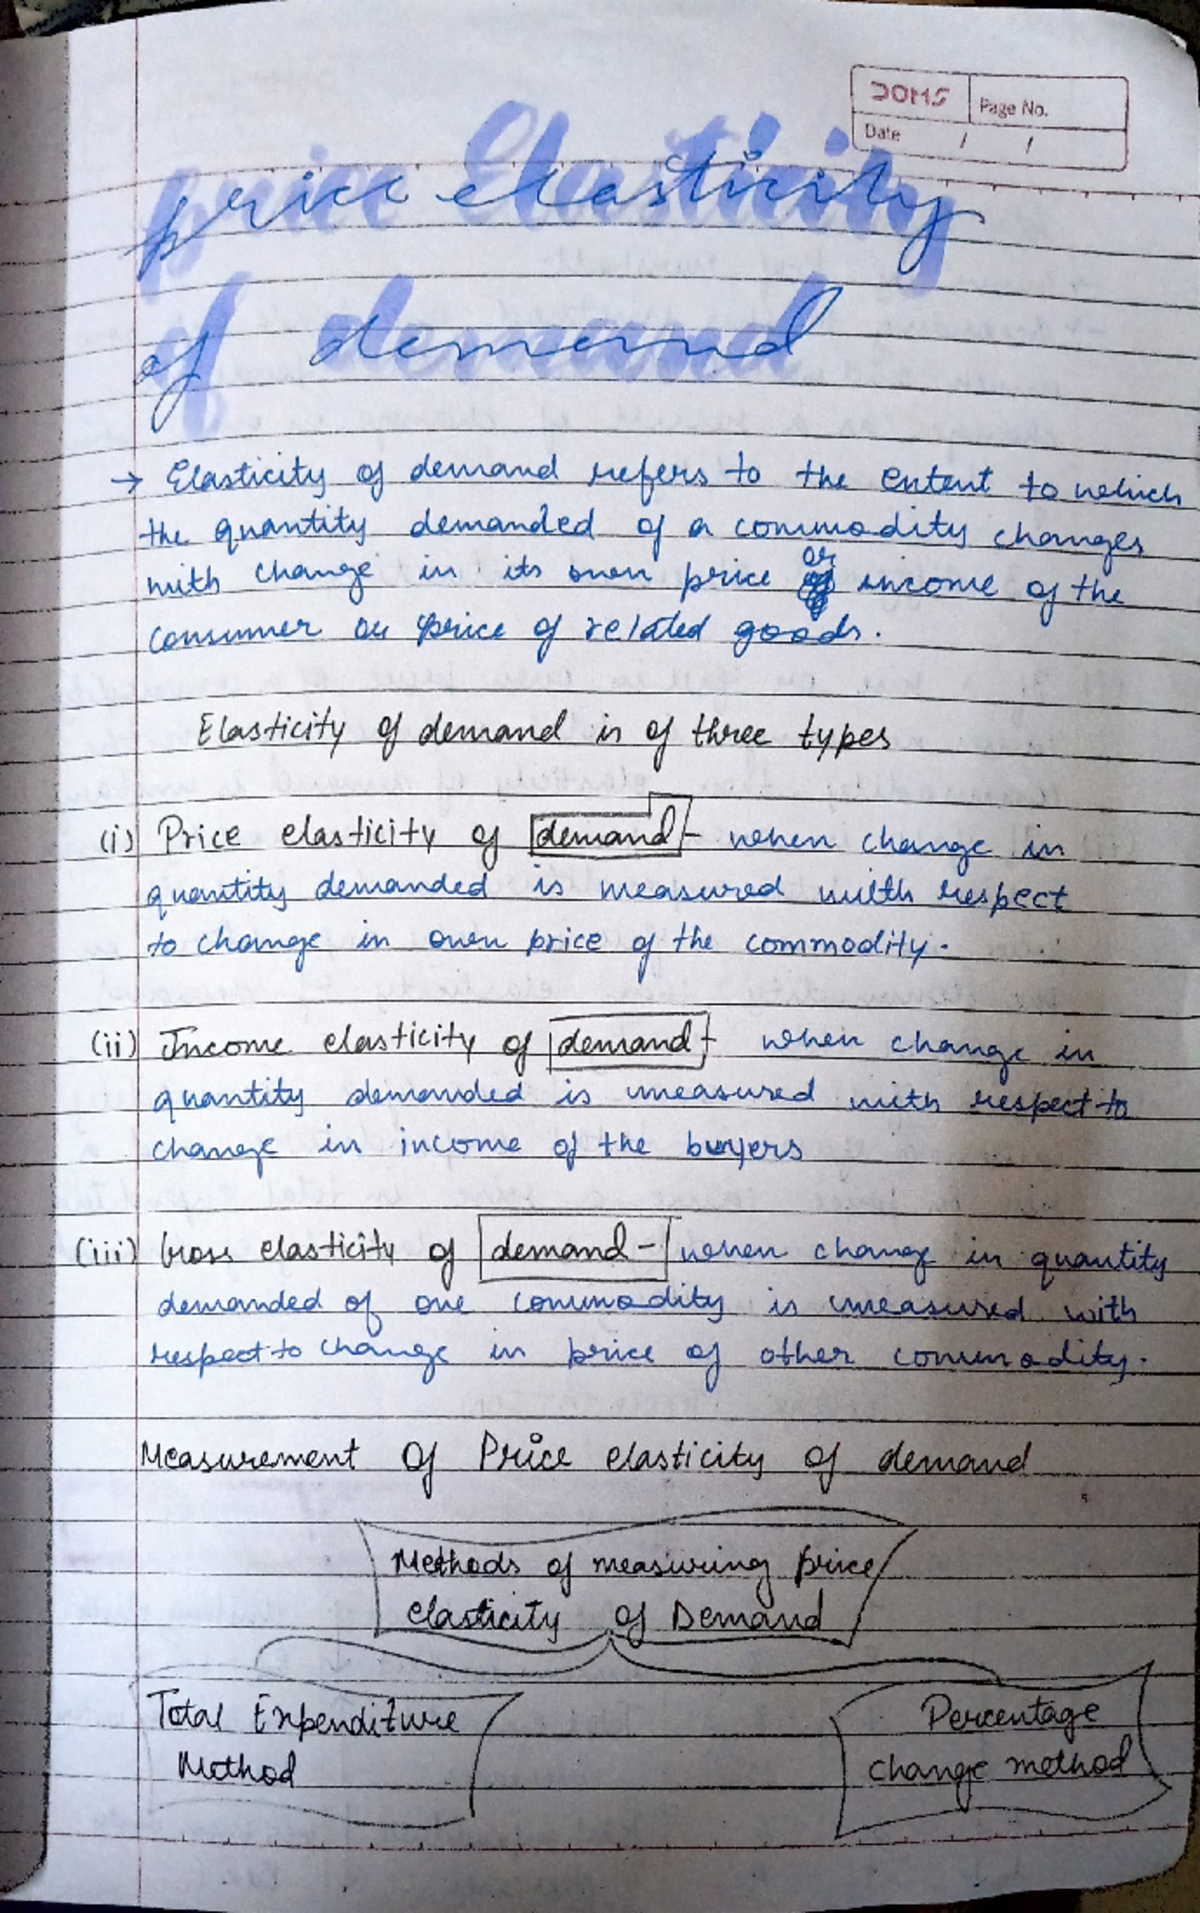 DOMS
Page No.
Date / /
price elasticity
of demand
→ Elasticity of demand refers to the extent to which
the quantity demanded of a commodity changes
with change in its own price or income of the
consumer or price of related goods.
Elasticity of demand is of three types
(i) Price elasticity of demand - when change in
quantity demanded is measured with respect
to change in own price of the commodity.
(ii) Income elasticity of demand - when change in
quantity demanded is measured with respect to
change in income of the buyers
(iii) Cross elasticity of demand - when change in quantity
demanded of one commodity is measured with
respect to change in price of other commodity.
Measurement of Price elasticity of demand
Methods of measuring price
elasticity of Demand
Total Expenditure
Method
Percentage
change method